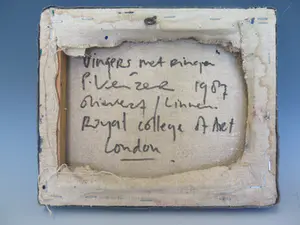 Vingers met ringen
P. Keizer 1987
olieverf / Linnen
Royal college of Art
London